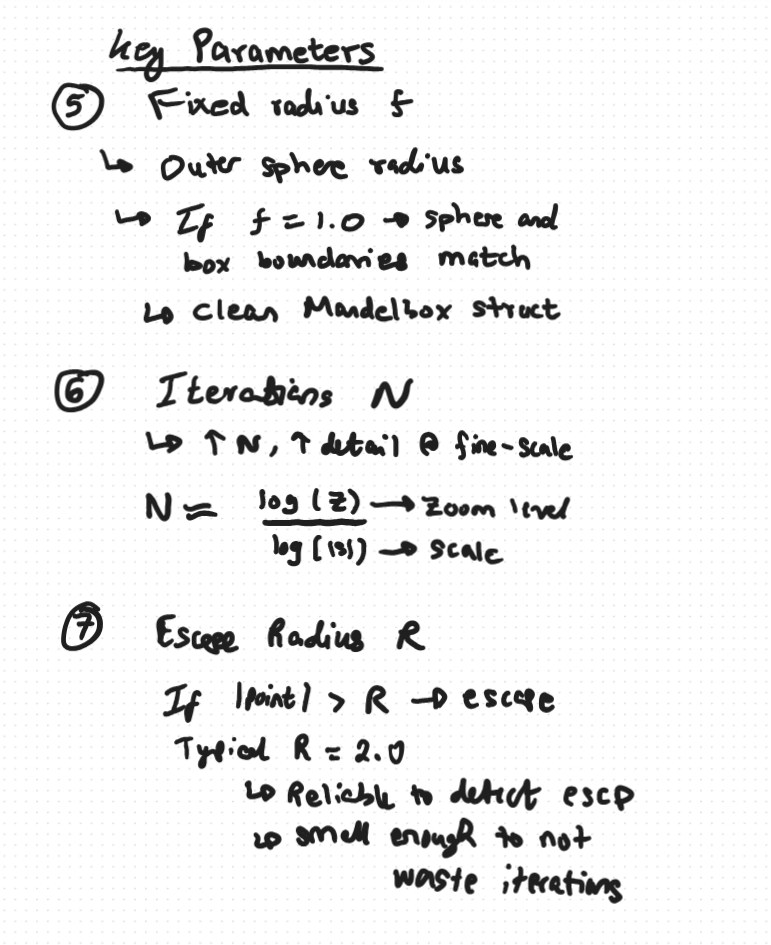 Key Parameters
⑤ Fixed radius f
↳ Outer sphere radius
↳ If f = 1.0 → sphere and
box boundaries match
↳ clean Mandelbox struct
⑥ Iterations N
↳ ↑ N, ↑ detail @ fine-scale
N ≈ log(Z) → Zoom level
log(|s|) → scale
⑦ Escape Radius R
If |point| > R → escape
Typical R = 2.0
↳ Reliable to detect escp
↳ small enough to not
waste iterations